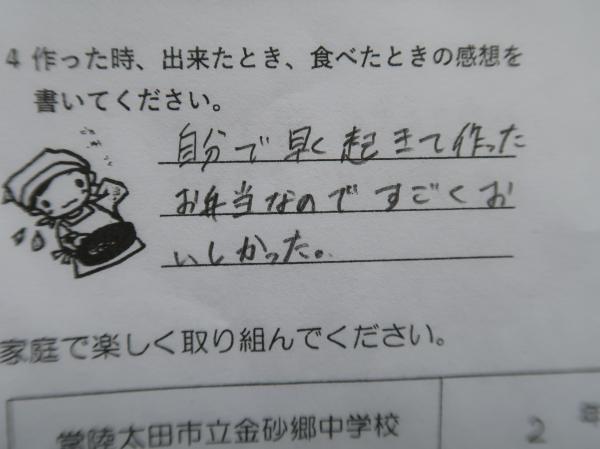 4 作った時、出来たとき、食べたときの感想を
書いてください。
自分で早く起きて作った
お弁当なのですごくお
いしかった。
家庭で楽しく取り組んでください。
常陸太田市立金砂郷中学校
2 年